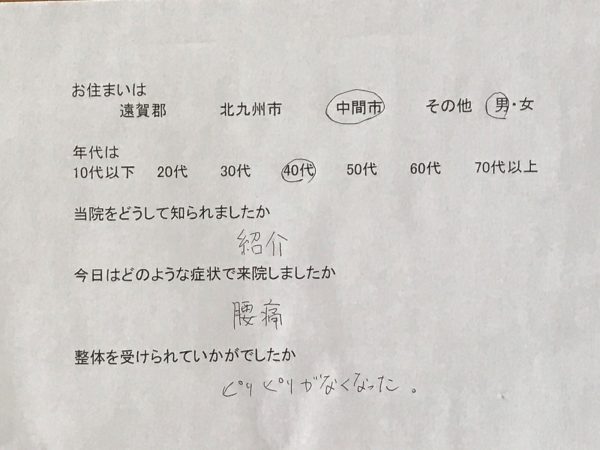 お住まいは
遠賀郡 北九州市 中間市 その他 男・女
年代は
10代以下 20代 30代 40代 50代 60代 70代以上
当院をどうして知られましたか
紹介
今日はどのような症状で来院しましたか
腰痛
整体を受けられていかがでしたか
ピリピリがなくなった。